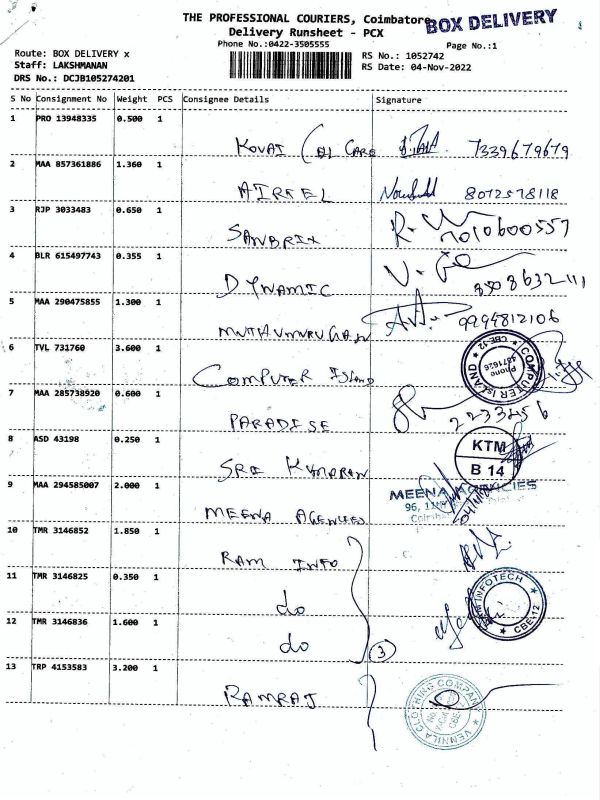 THE PROFESSIONAL COURIERS, Coimbatore
BOX DELIVERY
Delivery Runsheet - PCX
Phone No.:0422-3505555
Page No.:1
Route: BOX DELIVERY x
RS No.: 1052742
Staff: LAKSHMANAN
RS Date: 04-Nov-2022
DRS No.: DCJB105274201
S No Consignment No Weight PCS Consignee Details Signature
1 PRO 13948335 0.500 1
KOVAI CELL CARE 7339679679
2 MAA 857361886 1.360 1
AIRTEL 8072578118
3 RJP 3033483 0.650 1
SANBRIX 7010600557
4 BLR 615497743 0.355 1
DYNAMIC
5 MAA 290475855 1.300 1
MUTHUMURUGAN 9994812106
6 TVL 731760 3.600 1
COMPUTER ISLAND
COMPUTER ISLAND
CBE-12
Phone
4371626
7 MAA 285738920 0.600 1
PARADISE 2233456
8 ASD 43198 0.250 1
SRI KUMARAN
KTM
B 14
9 MAA 294585007 2.000 1
MEENA AGENCIES
MEENA AGENCIES
96,
10 TMR 3146852 1.850 1
RAM INFO
11 TMR 3146825 0.350 1
do
INFOTECH
CBE-12
12 TMR 3146836 1.600 1
do
3
13 TRP 4153583 3.200 1
RAMRAJ
VENNILA CLOTHING COMPANY